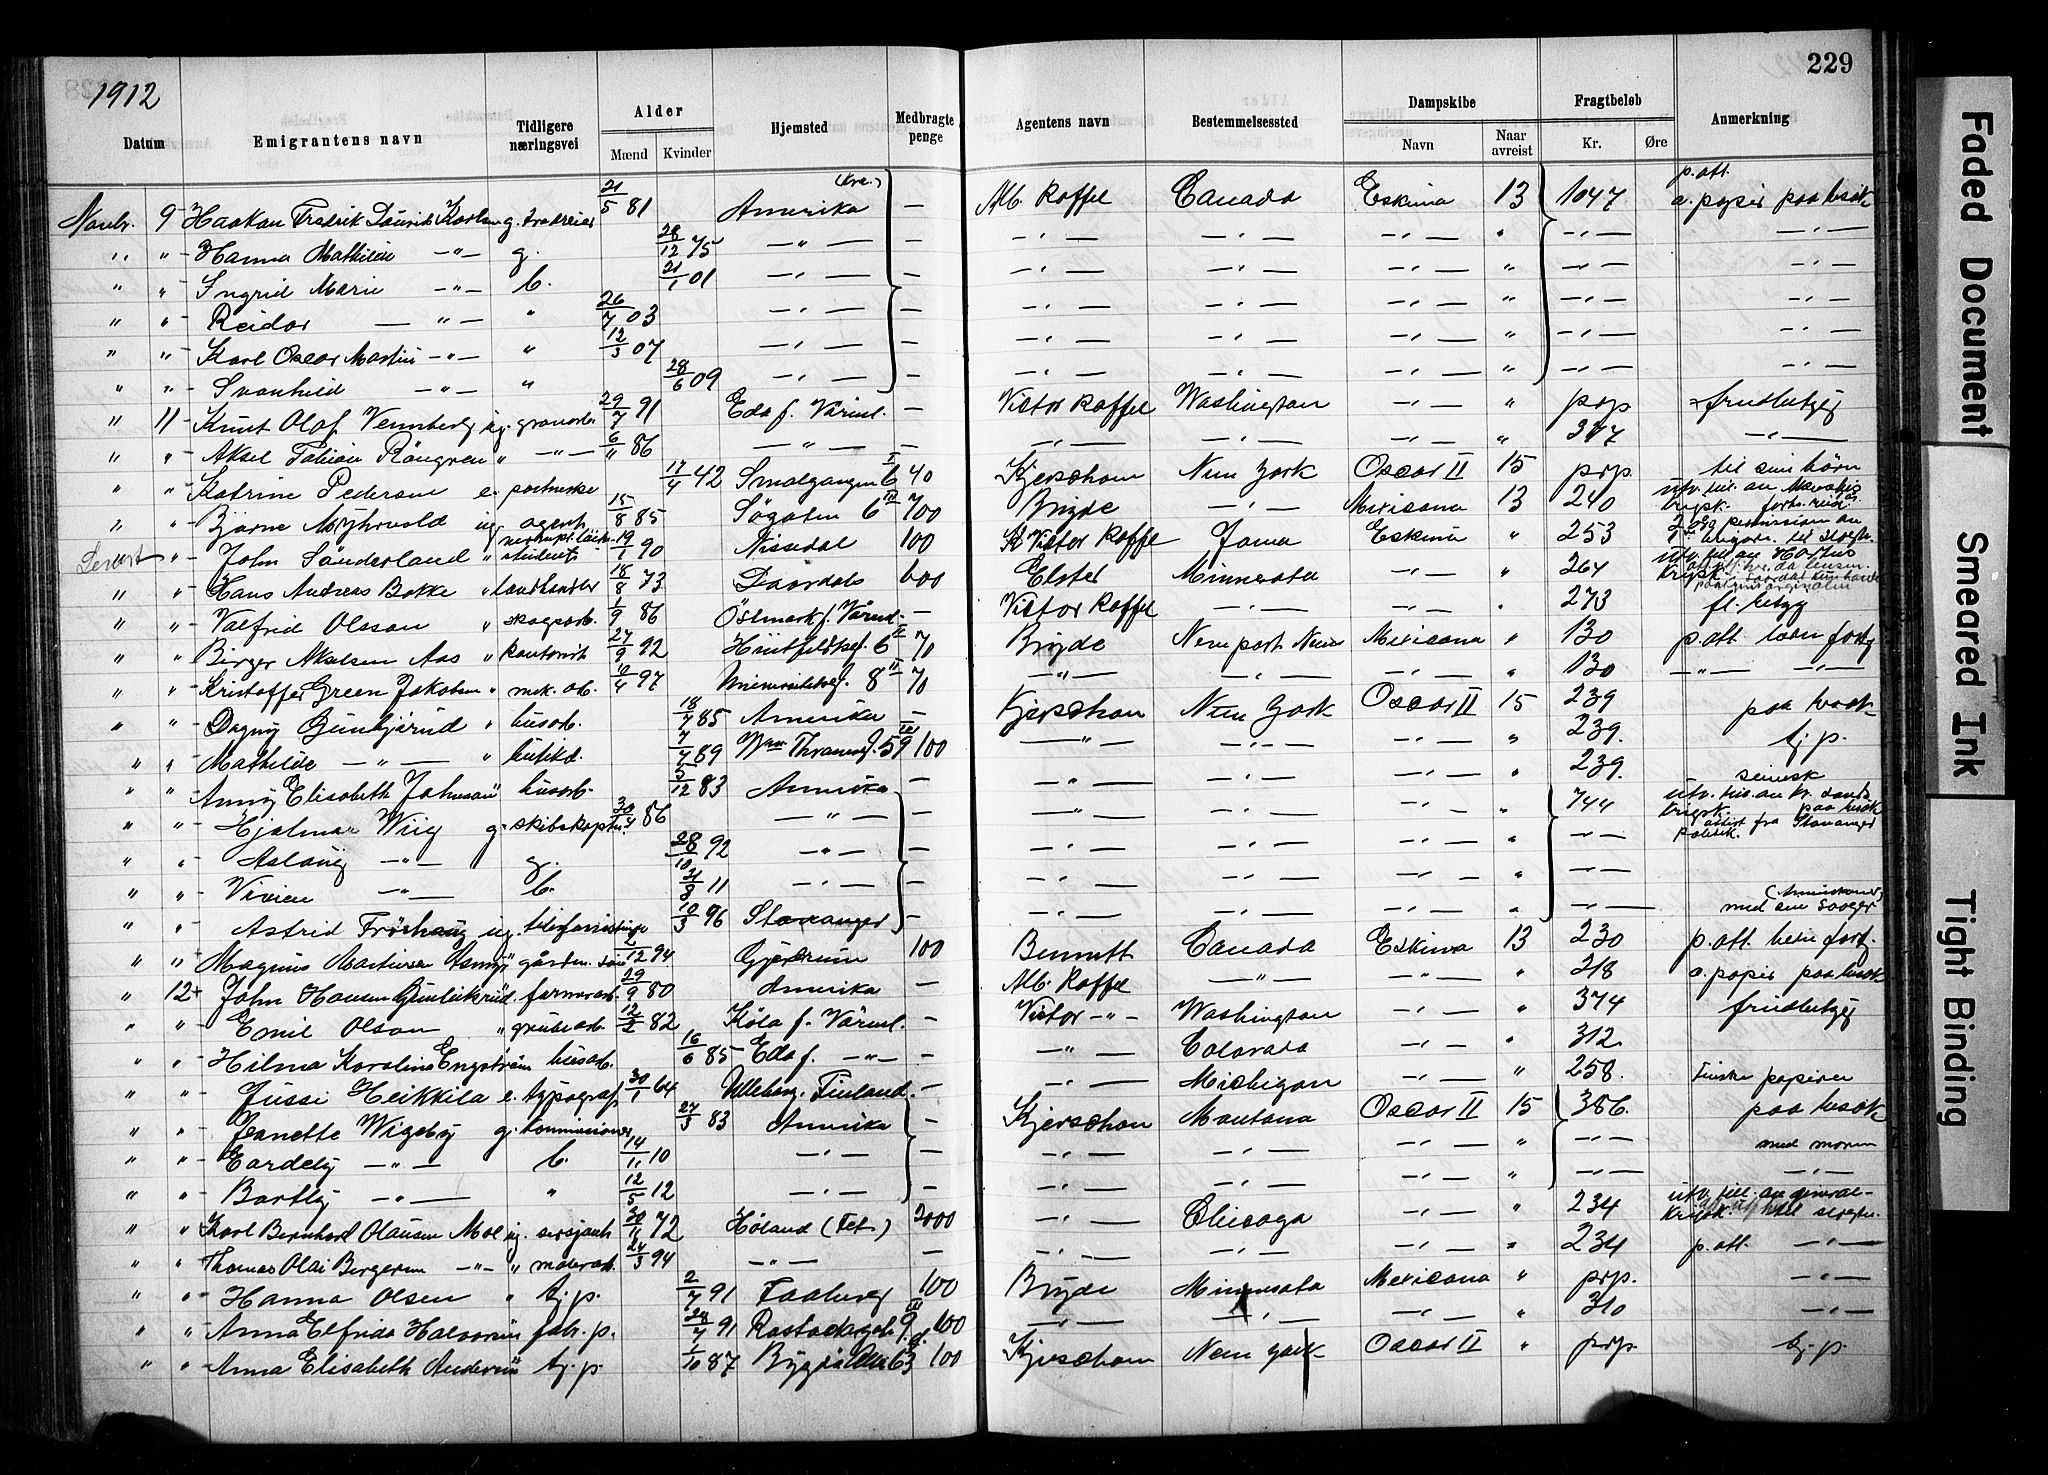 1912
229
Datum | Emigrantens navn | Tidligere næringsvei | Alder Mænd | Kvinder | Hjemsted | Medbragte penge | Agentens navn | Bestemmelsessted | Dampskibe Navn | Naar avreist | Fragtbeløb Kr. | Øre | Anmerkning
Novbr. 9 Haakon Fredrik Laurits Karlsen g. 21/5 81 Amerika — Alb. Roffel Canada Eskimo 13 1047 p. att. a. papir paa besøk
" " Hanna Mathilde —"— g. 28/12 75 —"— — —"— —"— —"— " —"— —"—
" " Ingrid Marie —"— b. 21/1 01 —"— — —"— —"— —"— " —"— —"—
" " Reidar —"— " 26/7 03 —"— — —"— —"— —"— " —"— —"—
" " Karl Oscar Martin —"— " 12/3 07 —"— — —"— —"— —"— " —"— —"—
" " Svanhild —"— " 28/6 09 —"— — —"— —"— —"— " —"— —"—
" 11 Knut Olof Vennberg ug. 29/7 91 Eda f. Värml. — Victor Roffel Washington —"— " prp
" " Aksel Fabian Röngren " —"— 6/11 86 —"— — —"— —"— —"— " 377 —"—
" " Katrine Pedersen e. 17/4 42 Smalgangen 6 40 Kjerschow New York Oscar II 15 prp. til sine børn
" " Bjarne Myhrvold ug agent 15/8 85 Søgaten 6 700 Bryde —"— Mexicano 13 240
" John Sønderland " student 19/1 90 Nissedal 100 Victor Roffel Jowa Eskimo " 253
" " Hans Andreas Bakke " landhandler 18/8 73 600 Elster Minnesota —"— " 264
" " Valfrid Olsson " skogsarb. 1/9 86 Östmark f. Värml. — Victor Roffel —"— —"— " 273 fl. betyg
" " Birger Akselsen Aas " kontorist 27/9 92 Huitfeldtsg. 6 70 Bryde Newport News Mexicano " 130 p. att.
" " Kristoffer Green Jakobsen " mek. arb. 10/4 97 Universitetsg. 8 70 —"— —"— " 130 —"— —"—
" " Dagny Gunbjørud " husarb. 18/7 85 Amerika — Kjerschow New York Oscar II 15 239 paa besøk
" " Mathilde —"— " 7/4 89 Thranesg. 59 100 —"— —"— —"— 239. tj. p.
" " Anny Elisabeth Johnson " husarb. 5/12 83 Amerika — —"— —"— —"— " 239. svensk
" " Hjalmar Wiig g. skibskaptn. 30/4 86 —"— — —"— —"— —"— " 744
" " Aslaug —"— g. 28/10 92 —"— — —"— —"— —"— " —"—
" " Vivien —"— b. 21/8 11 —"— — —"— —"— —"— " —"—
" " Astrid Frøshaug ug. telefonistinde 10/3 96 Stavanger — —"— —"— —"— " —"— med sin svoger
" " Magnus Martinsen " gårdm. søn 2/12 94 Gjerdrum 100 Bennett Canada Eskimo 13 230 p. att.
" 12 John Hansen farmerarb. 29/9 80 Amerika — Alb. Roffel —"— —"— " 218 a. papir paa besøk
" " Emil Olson " grubearb. 12/2 82 Köla f. Värml. — Victor —"— Washington —"— " 374
" " Hilma Karolina Engström husarb. 16/6 85 Eda f. —"— — —"— Colorado —"— " 312
" " Jussi Heikkila e. typograf 30/1 64 Uleåborg. Finland. — —"— Michigan —"— " 258. Finske papirer
" " Jeanette Wigeby g. 27/3 83 Amerika — Kjerschow Montana Oscar II 15 386. paa besøk
" " —"— b. 14/11 10 —"— — —"— —"— —"— " —"— med moren
" " —"— " 12/5 12 —"— — —"— —"— —"— " —"— —"—
" " Karl Bernhard Olausen Moe ug. sersjant 30/11 72 Høland (Fet.) 2000 —"— Chicago —"— " 234
" " Thomas Olai Bergersen —"— " malerarb. 24/3 94 —"— — —"— —"— —"— " 234 p. att. —"—
" " Hanna Olsen " tj. p. 2/7 91 Faaberg 100 Bryde Minnesota Mexicano " prp. —"—
" " Anna Elfrida Halvorsen fabr. p. 24/7 91 100 —"— —"— —"— " 310 —"—
" " Anna Elisabeth Andersen tj. p. 1/10 87 Bygdø Alle 63 100 Kjerschow New York Oscar II " prp. tj. p.
Faded Document
Smeared Ink
Tight Binding